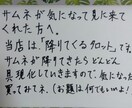 サムネが気になって見に来て
くれた方へ。
当店は、「降りてくるタロット」です。
サムネが降りてきたらどんどん
具現化していきますので、気になった
買ってみて下さい(お題は何でもいいよ!